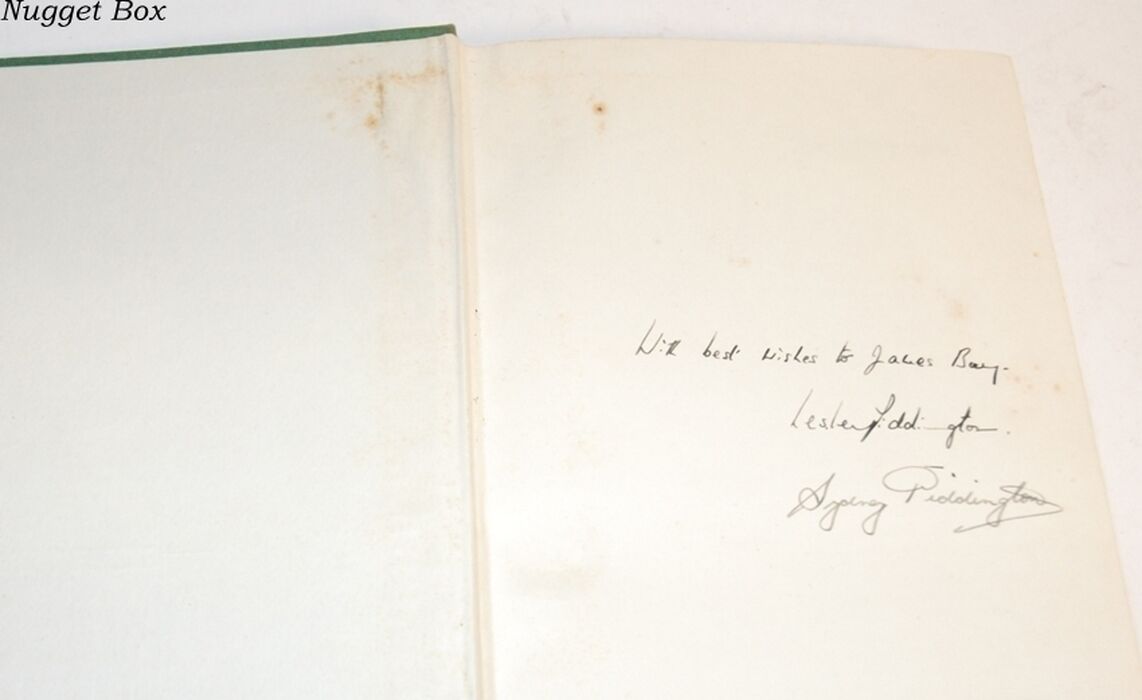 Nugget Box
With best wishes to James Bay.
Lesley Piddington.
Sydney Piddington